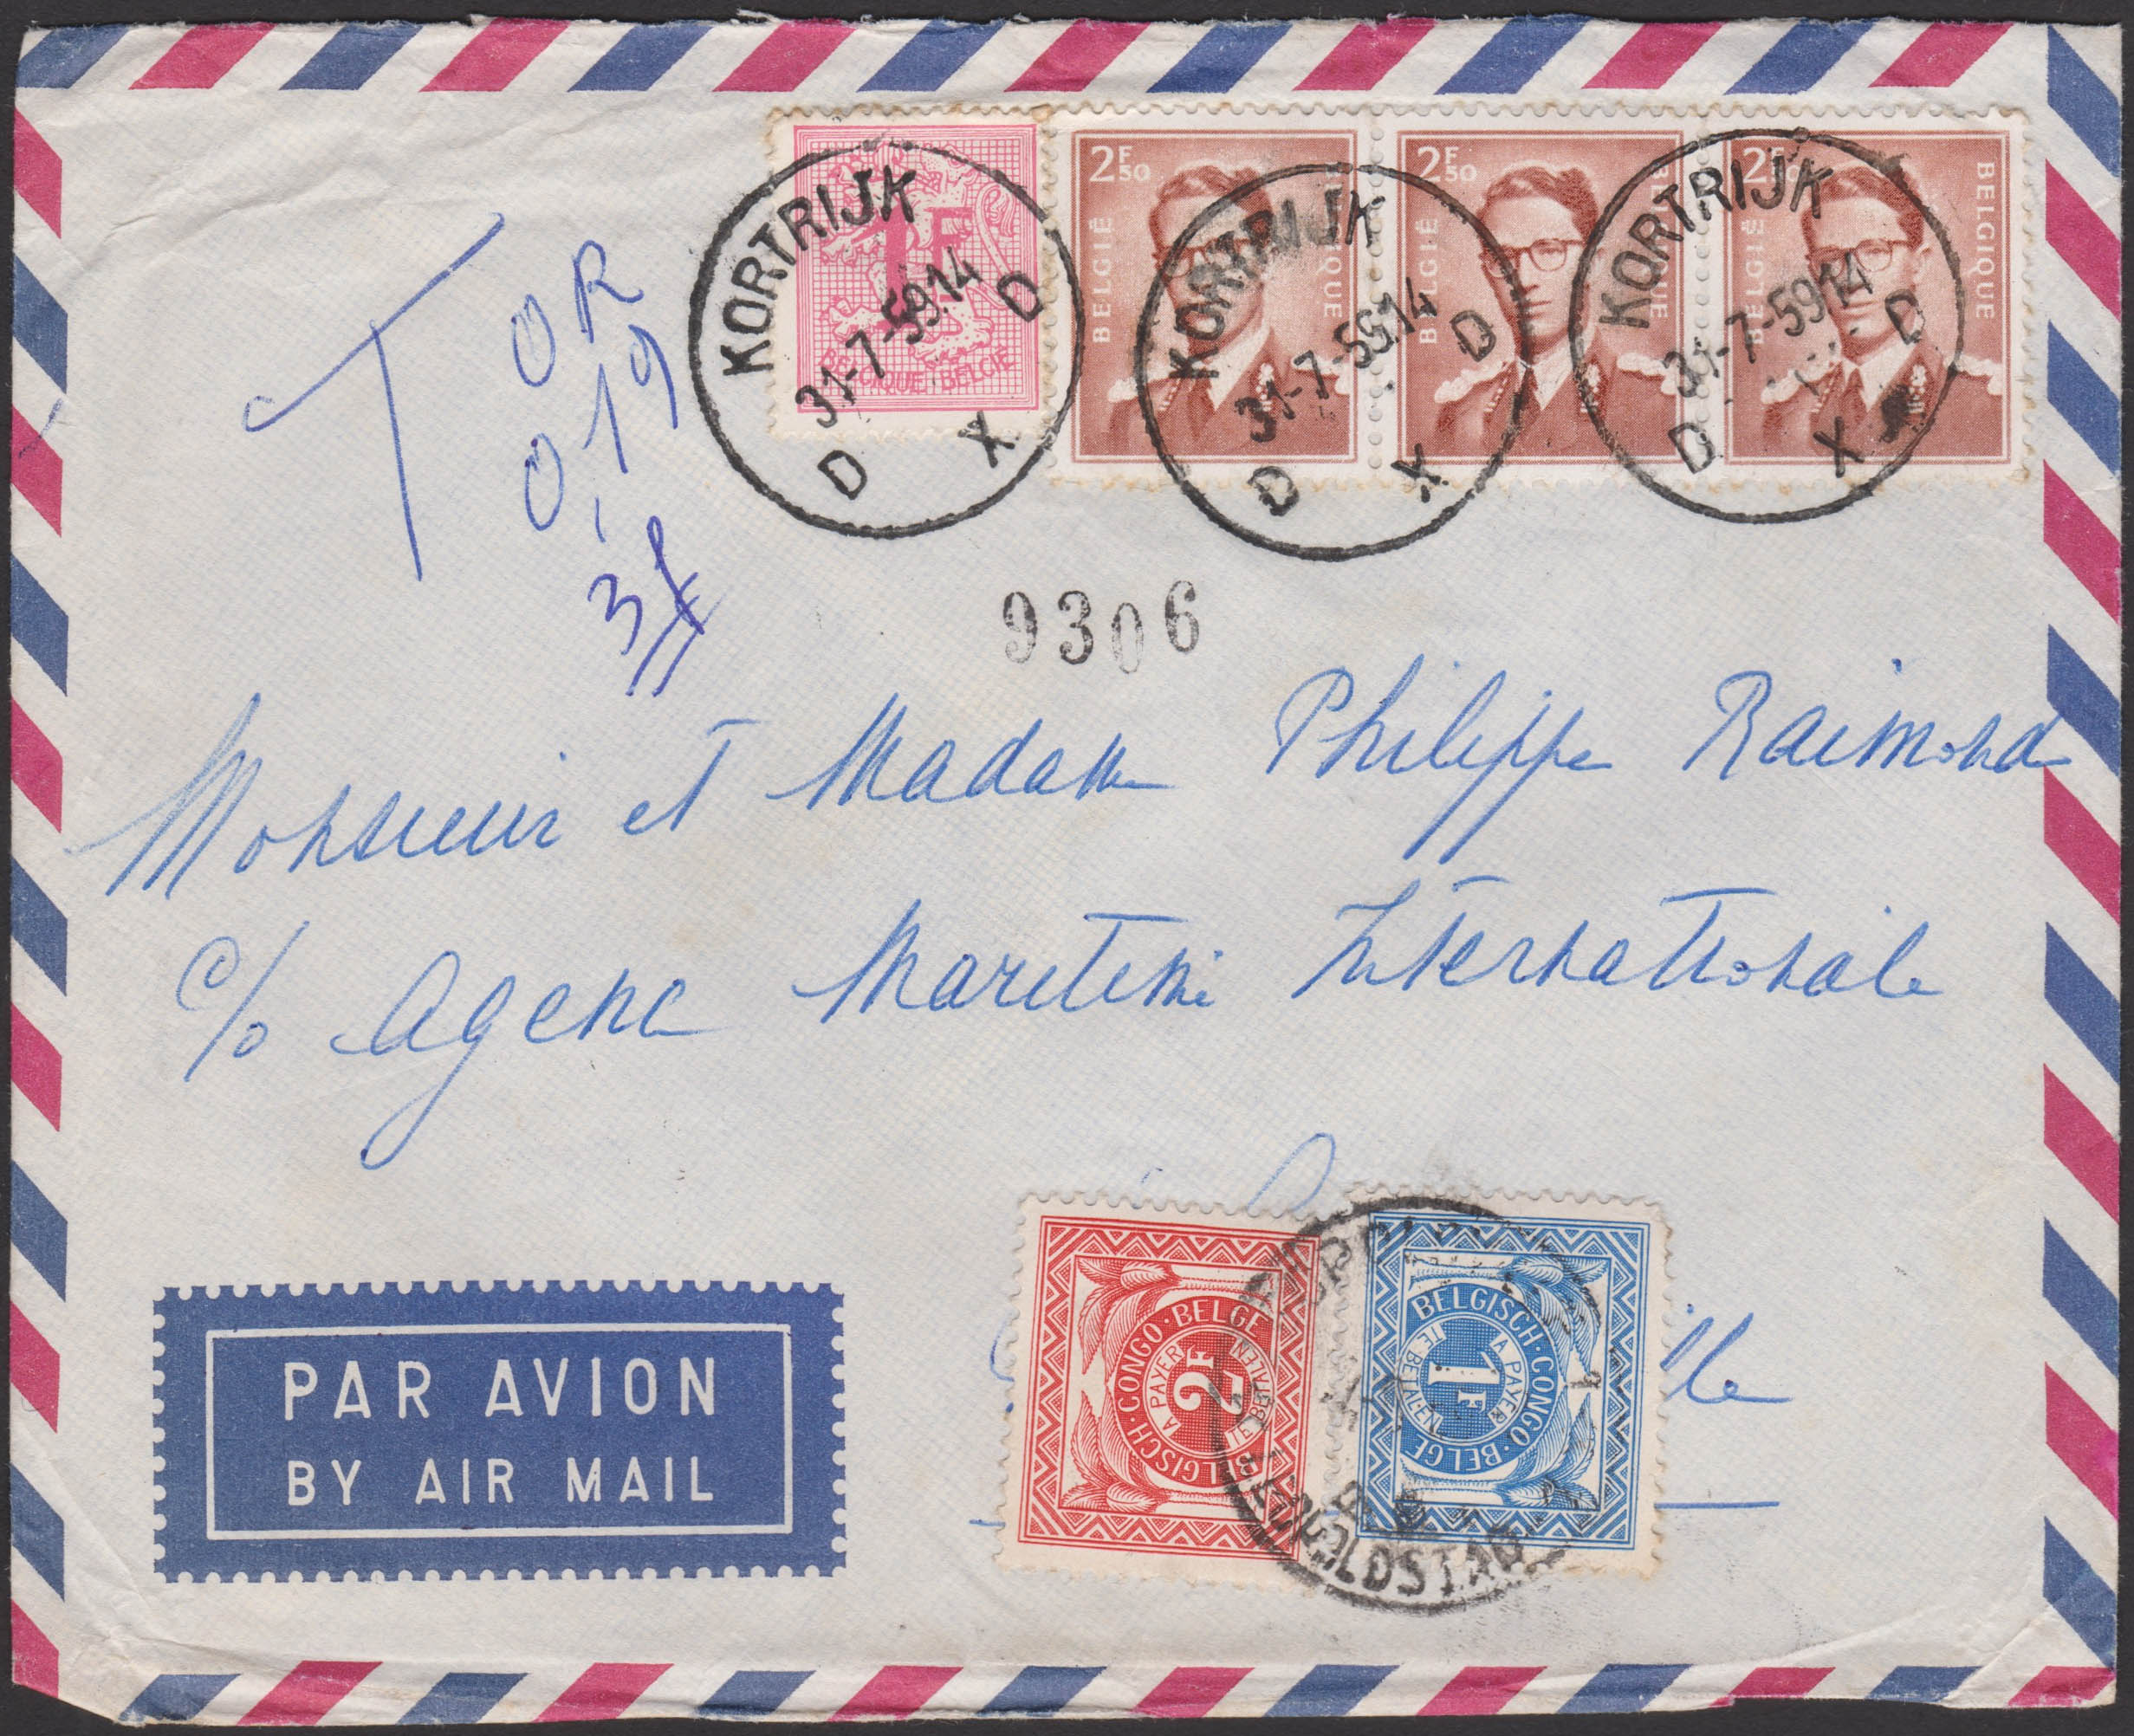 T
OR
0,19
3f
1F
BELGIQUE·BELGIË
2F50 BELGIË BELGIQUE
2F50 BELGIË BELGIQUE
2F50 BELGIË BELGIQUE
KORTRIJK
31-7-59.14
D X D
KORTRIJK
31-7-59.14
D X D
KORTRIJK
31-7-59.14
D X D
9306
Monsieur et Madame Philippe Raimond
c/o Agence Maritime Internationale
lle
PAR AVION
BY AIR MAIL
BELGISCH·CONGO·BELGE
A PAYER
TE BETALEN
2F
BELGISCH·CONGO·BELGE
A PAYER
TE BETALEN
1F
LEOPOLDSTAD